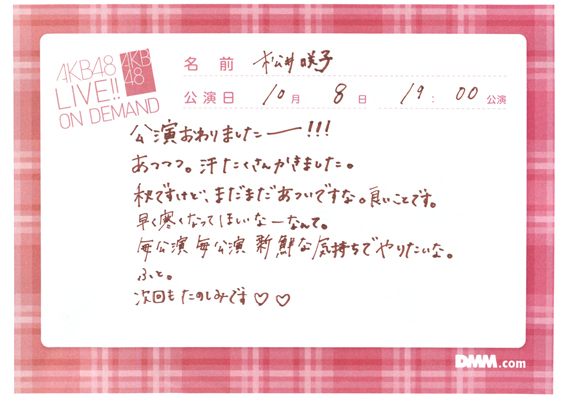 AKB48
LIVE!!
ON DEMAND
AKB
48
名前 松井咲子
公演日 10月 8日 19:00公演
公演おわりましたー!!!
あっつっ。汗たくさんかきました。
秋ですけど、まだまだあついですな。良いことです。
早く寒くなってほしいなーなんて。
毎公演毎公演 新鮮な気持ちでやりたいな。
ふと。
次回もたのしみです♡♡
DMM.com